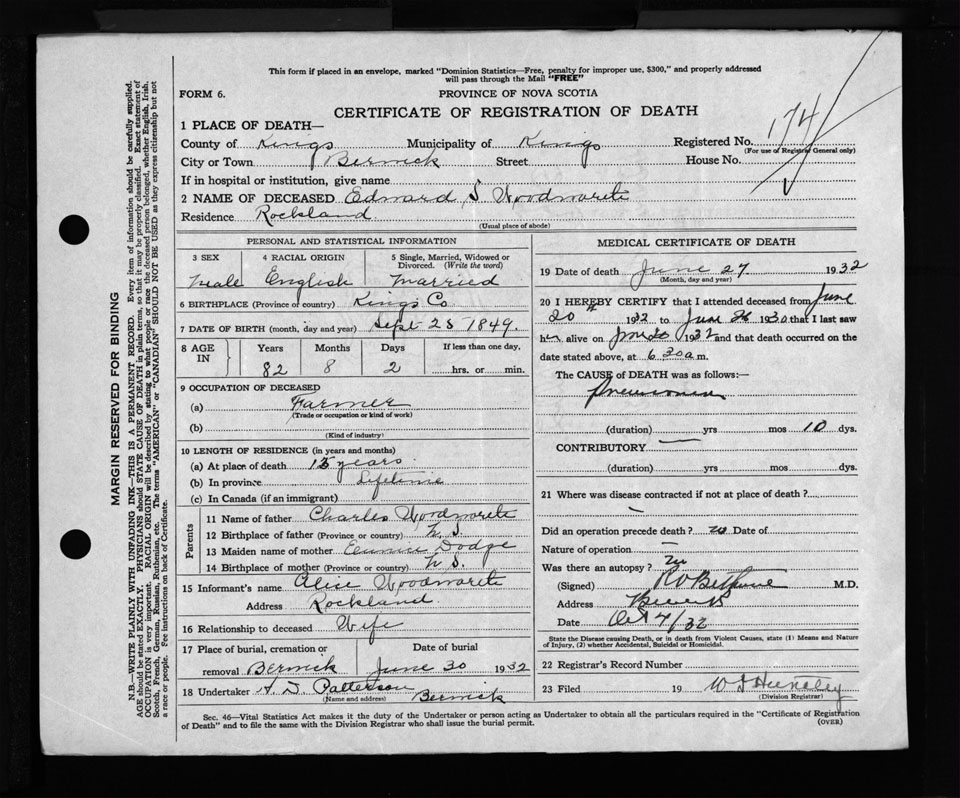 This form if placed in an envelope, marked "Dominion Statistics—Free, penalty for improper use, $300," and properly addressed
will pass through the Mail "FREE"
FORM 6.
PROVINCE OF NOVA SCOTIA
CERTIFICATE OF REGISTRATION OF DEATH
1 PLACE OF DEATH—
County of Kings Municipality of Kings Registered No. 174
(For use of Registrar General only)
City or Town Berwick Street House No.
If in hospital or institution, give name
2 NAME OF DECEASED Edward S Woodworth
Residence Rockland
(Usual place of abode)
PERSONAL AND STATISTICAL INFORMATION
3 SEX 4 RACIAL ORIGIN 5 Single, Married, Widowed or
Divorced. (Write the word)
Male English Married
6 BIRTHPLACE (Province or country) Kings Co
7 DATE OF BIRTH (month, day and year) Sept 25 1849.
8 AGE IN Years Months Days If less than one day,
82 8 2 hrs. or min.
9 OCCUPATION OF DECEASED
(a) Farmer
(Trade or occupation or kind of work)
(b)
(Kind of industry)
10 LENGTH OF RESIDENCE (in years and months)
(a) At place of death 15 years
(b) In province Lifetime
(c) In Canada (if an immigrant)
Parents
11 Name of father Charles Woodworth
12 Birthplace of father (Province or country) N S.
13 Maiden name of mother Eunice Dodge
14 Birthplace of mother (Province or country) N S.
15 Informant's name Alice Woodworth
Address Rockland
16 Relationship to deceased Wife
17 Place of burial, cremation or Date of burial
removal Berwick June 30 1932
18 Undertaker A. D. Patterson Berwick
(Name and address)
MEDICAL CERTIFICATE OF DEATH
19 Date of death June 27 1932
(Month, day and year)
20 I HEREBY CERTIFY that I attended deceased from June
20th 1932 to June 26 1930 that I last saw
him alive on 1932 and that death occurred on the
date stated above, at 6 30 a m.
The CAUSE of DEATH was as follows:—
Pneumonia
(duration) yrs mos 10 dys.
CONTRIBUTORY —
(duration) yrs mos dys.
21 Where was disease contracted if not at place of death?
—
Did an operation precede death? no Date of
Nature of operation —
Was there an autopsy? no
(Signed) R V Bethune M.D.
Address Berwick
Date Oct 7/32
State the Disease causing Death, or in death from Violent Causes, state (1) Means and Nature
of Injury, (2) whether Accidental, Suicidal or Homicidal.
22 Registrar's Record Number
23 Filed 19
(Division Registrar)
Sec. 46—Vital Statistics Act makes it the duty of the Undertaker or person acting as Undertaker to obtain all the particulars required in the "Certificate of Registration
of Death" and to file the same with the Division Registrar who shall issue the burial permit.
(OVER)
MARGIN RESERVED FOR BINDING
N.B.—WRITE PLAINLY WITH UNFADING INK—THIS IS A PERMANENT RECORD. Every item of information should be carefully supplied.
AGE should be stated EXACTLY. PHYSICIANS should STATE CAUSE OF DEATH in plain terms, so that it may be properly classified. Exact statement of
OCCUPATION is very important. RACIAL ORIGIN will be described by stating to what people or race the deceased person belonged, whether English, Irish,
Scotch, French, German, Russian, Ruthenian, etc. The terms "AMERICAN" or "CANADIAN" SHOULD NOT BE USED as they express citizenship but not
a race or people. Fee instructions on back of Certificate.